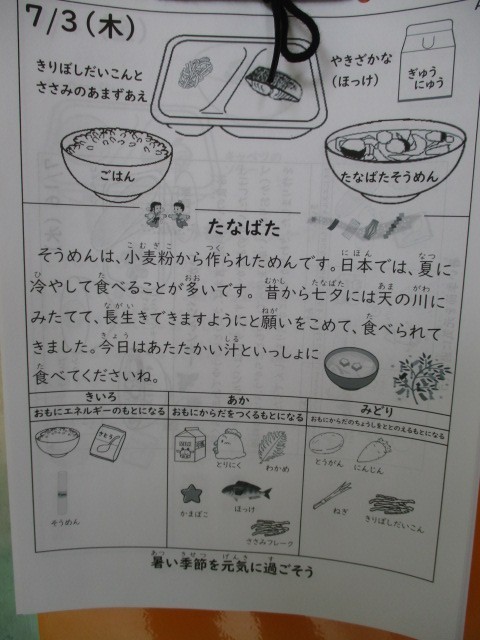 7/3(木)
きりぼしだいこんと
ささみのあまずあえ
やきざかな
(ほっけ)
ぎゅう
にゅう
ごはん
たなばたそうめん
たなばた
そうめんは、小麦粉から作られためんです。日本では、夏に
冷やして食べることが多いです。昔から七夕には天の川に
みたてて、長生きできますようにと願いをこめて、食べられて
きました。今日はあたたかい汁といっしょに
食べてくださいね。
きいろ
おもにエネルギーのもとになる
そうめん
あか
おもにからだをつくるもとになる
とりにく
わかめ
かまぼこ
ほっけ
ささみフレーク
みどり
おもにからだのちょうしをととのえるもとになる
とうがん
にんじん
ねぎ
きりぼしだいこん
暑い季節を元気に過ごそう